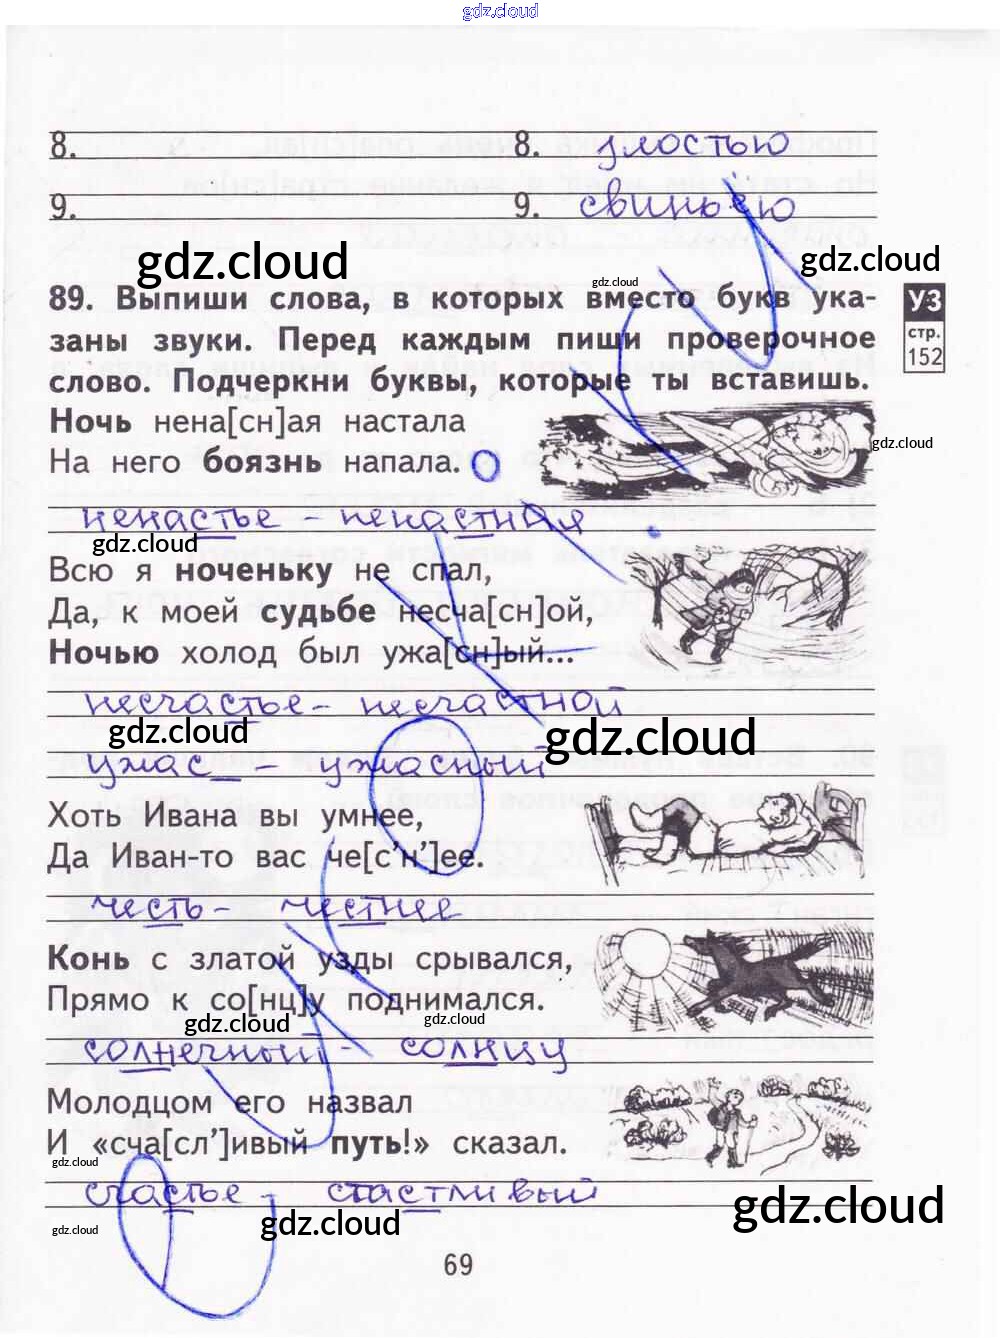 gdz.cloud
8. 8. улостью
9. 9. свиньею
gdz.cloud gdz.cloud
gdz.cloud
89. Выпиши слова, в которых вместо букв ука-
заны звуки. Перед каждым пиши проверочное
слово. Подчеркни буквы, которые ты вставишь.
УЗ
стр.
152
Ночь нена[сн]ая настала
На него боязнь напала.
gdz.cloud
ненастье - ненастная
gdz.cloud
Всю я ноченьку не спал,
Да, к моей судьбе несча[сн]ой,
Ночью холод был ужа[сн]ый...
несчастье - несчастной
gdz.cloud gdz.cloud
ужас_ - ужасный
Хоть Ивана вы умнее,
Да Иван-то вас че[с’н’]ее.
честь - честнее
Конь с златой узды срывался,
Прямо к со[нц]у поднимался.
gdz.cloud gdz.cloud
солнечный - солнцу
Молодцом его назвал
И «сча[сл’]ивый путь!» сказал.
gdz.cloud
счастье - стастливый
gdz.cloud gdz.cloud gdz.cloud
69